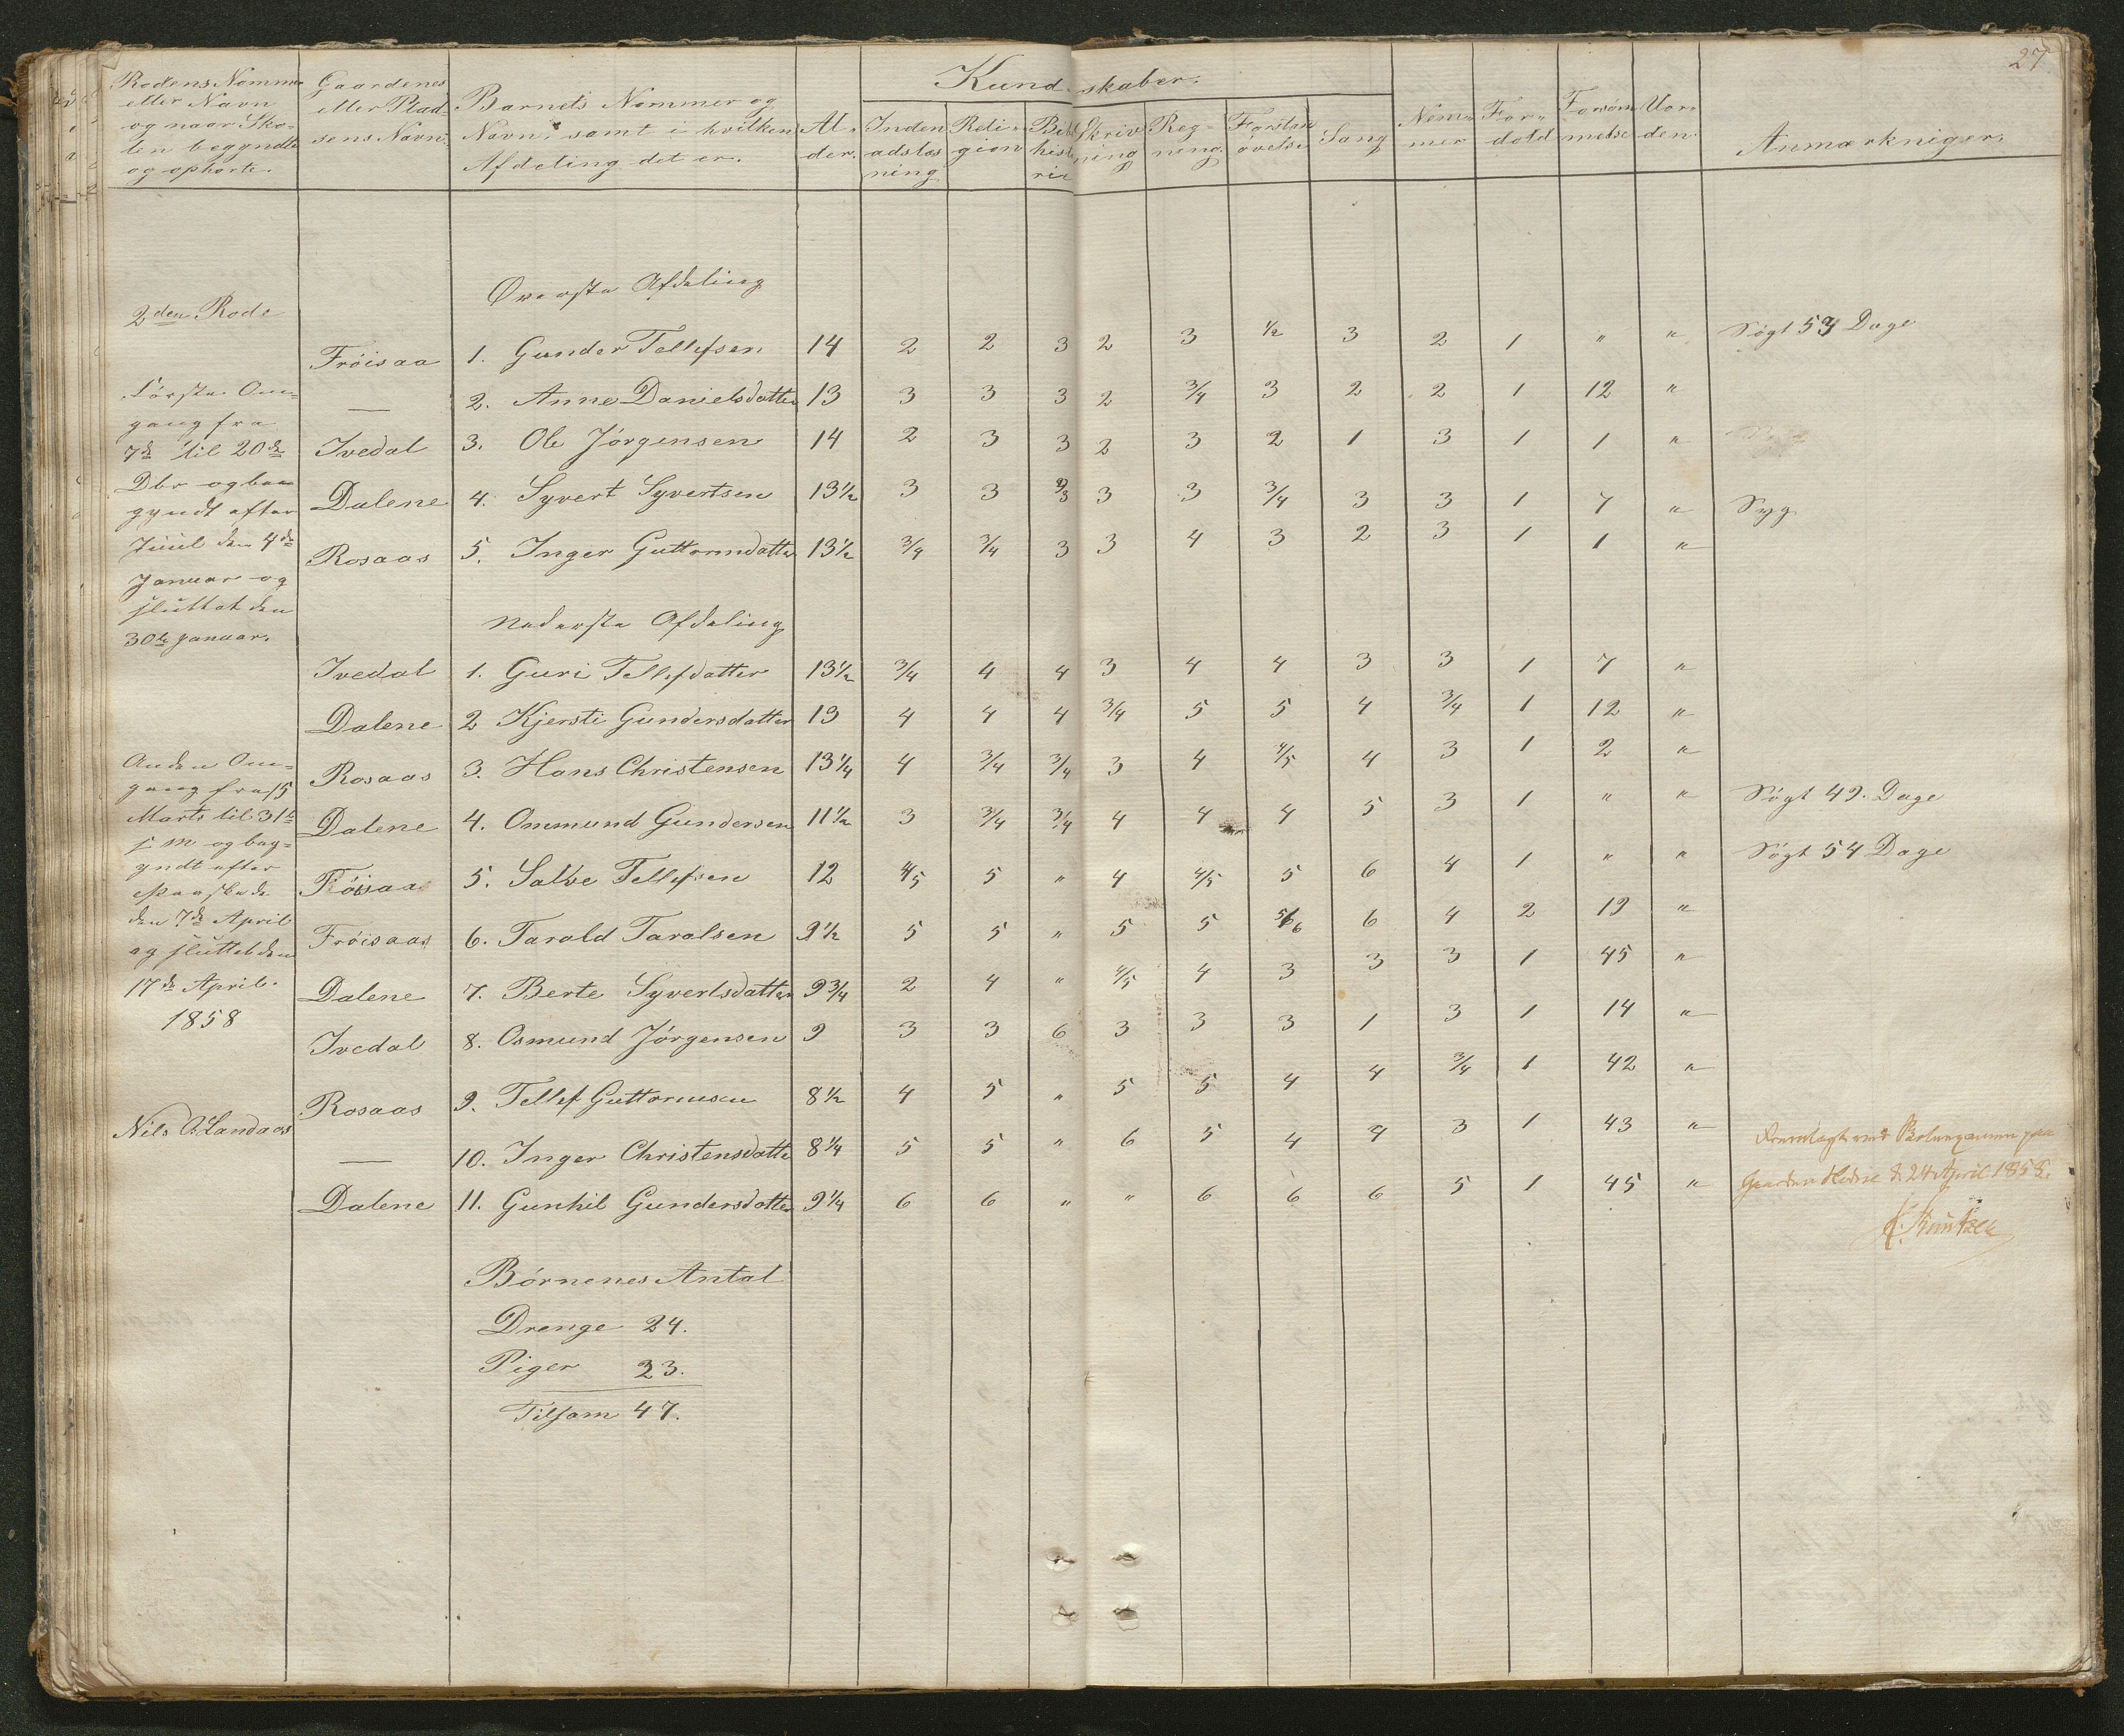 27
Kundskaber.
Rodens Nommer eller Navn og naar Skolen begyndte og ophørte.
Gaardenes eller Pladsens Navn.
Barnets Nommer og Navn, samt i hvilken Afdeling det er.
Alder.
Indenadslæsning
Religion
Bibelhistorie
Skrivning
Regning.
Forstandsøvelse
Sang
Nemmer
Forhold
Forsømmelse
Uorden.
Anmærkniger.
Øverste Afdeling
2den Rode
Fröisaa 1. Gunder Tellefsen 14 2 2 3 2 3 1/2 3 2 1 " " Søgt 54 Dage
— 2. Anne Danielsdatter 13 3 3 3 2 3/4 3 2 2 1 12 "
Ivedal 3. Ole Jörgensen 14 2 3 3 2 3 2 1 3 1 1 "
Dalene 4. Syvert Syvertsen 13½ 3 3 2/3 3 3 3/4 3 3 1 7 " Syg
Rosaas 5. Inger Guttormdatter 13½ 3/4 3/4 3 3 4 3 2 3 1 1 "
Første Om-
gang fra
7de til 20de
Dbr og bee
gyndt efter
Juul den 4de
Januar og
sluttet den
30te Januar.
Nederste Afdeling
Ivedal 1. Guri Tellefdatter 13½ 3/4 4 4 3 4 4 3 3 1 7 "
Dalene 2 Kjersti Gundersdatter 13 4 4 4 3/4 5 5 4 3/4 1 12 "
Rosaas 3. Hans Christensen 13¼ 4 3/4 3/4 3 4 4/5 4 3 1 2 "
Dalene 4. Ommund Gundersen 11½ 3 3/4 3/4 4 4 4 5 3 1 " " Søgt 49. Dage
Fröisaa 5. Salve Tellefsen 12 4/5 5 " 4 4/5 5 6 4 1 " " Søgt 54 Dage
Fröisaas 6. Tarald Taralsen 9½ 5 5 " 5 5 5/6 6 4 2 19 "
Dalene 7. Berte Syvertsdatter 9¾ 2 4 " 4/5 4 3 3 3 1 45 "
Ivedal 8. Osmund Jörgensen 9 3 3 6 3 3 3 1 3 1 14 "
Rosaas 9. Tellef Guttormsen 8½ 4 5 " 5 5 4 4 3/4 1 42 "
— 10. Inger Christensdatter 8¼ 5 5 " 6 5 4 4 3 1 43 "
Dalene 11. Gunhil Gundersdatter 9¼ 6 6 " " 6 6 6 5 1 45 "
Anden Om-
gang fra 15
Marts til 31te
s m og beg-
yndt efter
Paaske de
den 7de April
og sluttet den
17de April.
1858
Nils O. Landaas
Fremlagt ved
Gaarden d. 24 April 1858.
Knutzen
Börnenes Antal
Drenge 24.
Piger 23.
Tilsam 47.